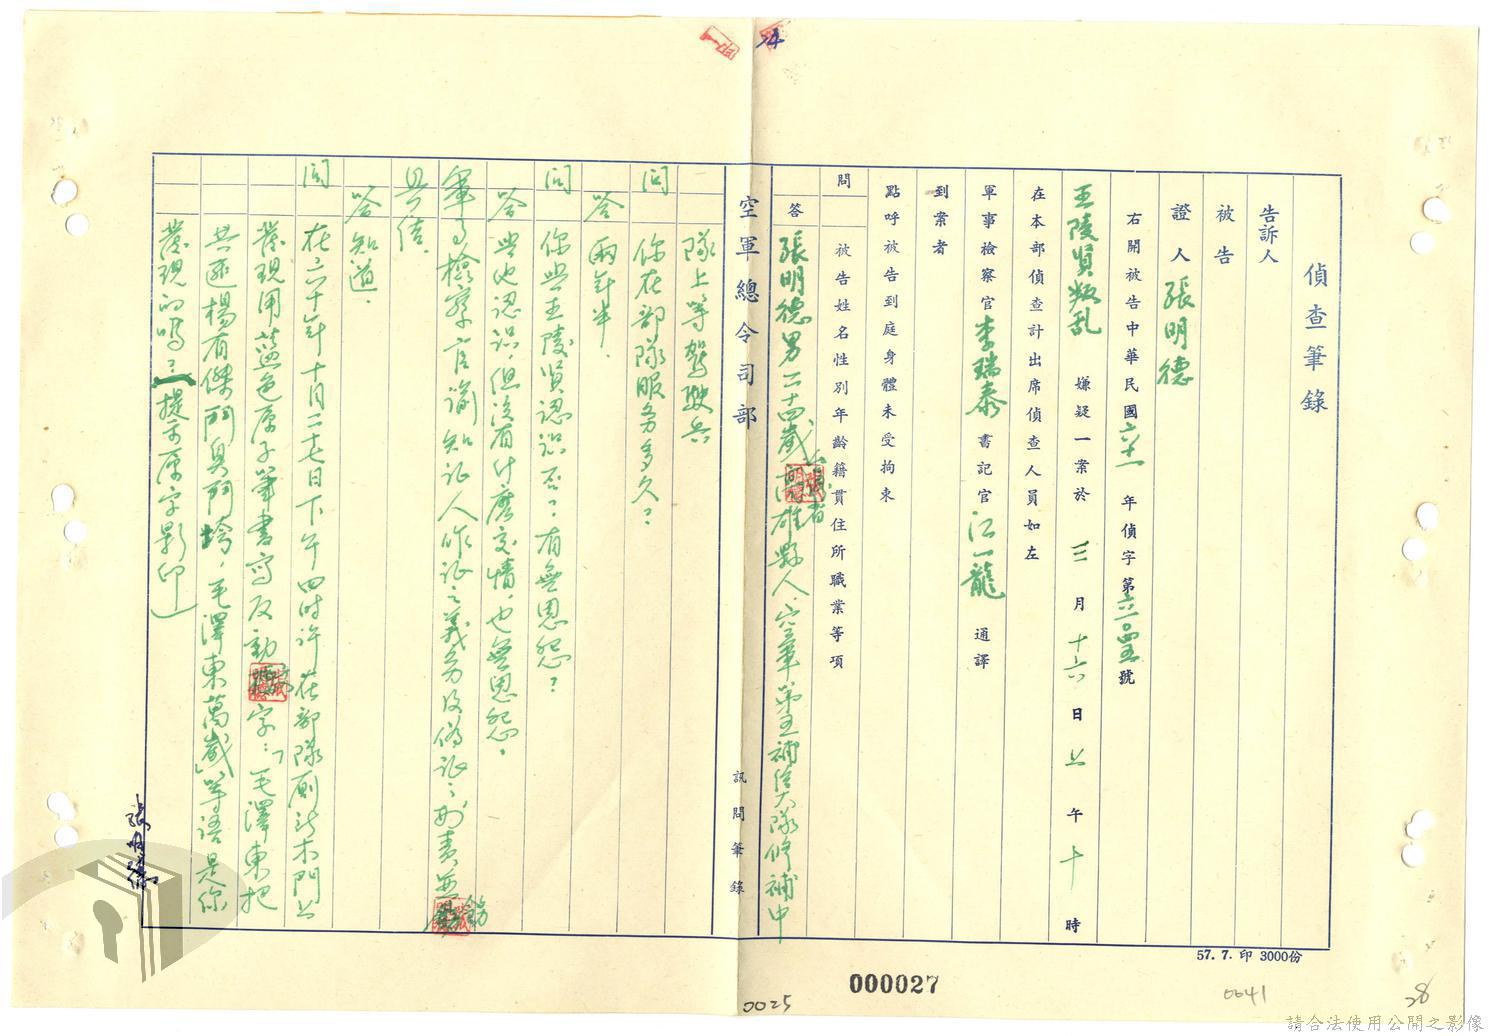 偵查筆錄
告訴人
被告
證人 張明德
右開被告中華民國六十一年偵字第六一〇四五號
王陵賢叛乱 嫌疑一案於 三月十六日上午十時
在本部偵查計出席偵查人員如左
軍事檢察官 李瑞泰 書記官 江一龍 通譯
到案者
點呼被告到庭身體未受拘束
問 被告姓名性別年齡籍貫住所職業等項
答 張明德男二十四歲台灣省高雄縣人、空軍第五補給大隊修補中
空軍總令司部 訊問筆錄
隊上等駕駛兵
問 你在部隊服务多久?
答 兩年半.
問 你與王陵賢認识否?有無恩怨?
答 與他認识,但沒有什麼交情,也無恩怨.
軍事檢察官諭知证人作证之義务及偽证之刑責並飭
具结.
答 知道.
問 在六十年十月二七日下午四時許在部隊厠所木門上
發現用藍色原子筆書寫反動字:「毛澤東把
共匪楊有傑鬥臭鬥垮,毛澤東萬歲」等語是你
發現的嗎?(提示原字影印)
張明德
57.7.印 3000份
000027
0025
0041
28
24
請合法使用公開之影像